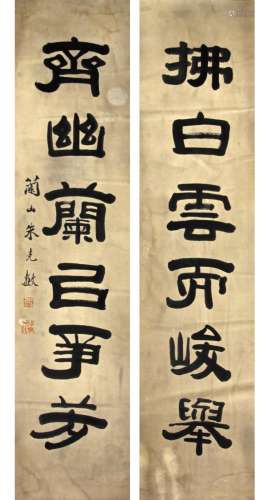 拂白雲而峻舉
齊幽蘭㠯爭芳
蘭山朱克敏